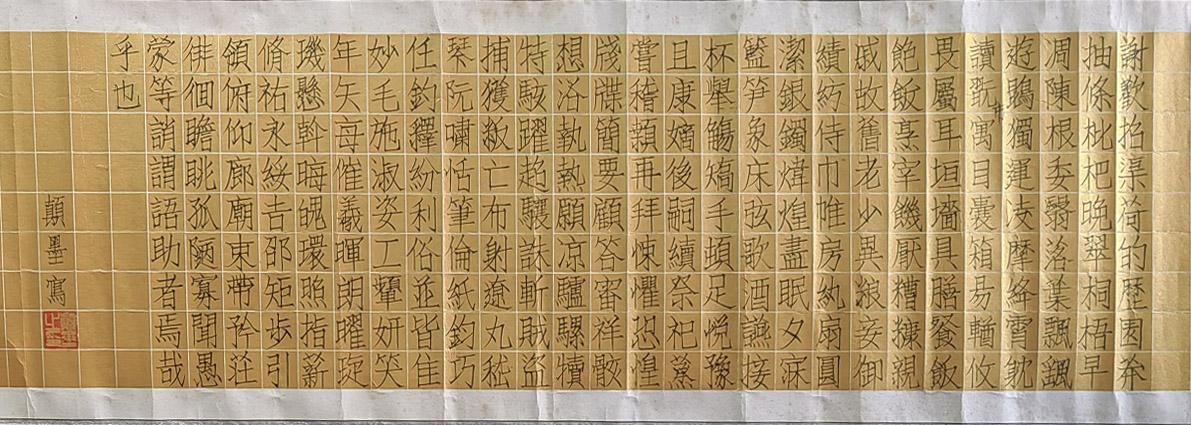 謝歡招渠荷的歷園莽
抽條枇杷晚翠桐梧早
周陳根委翳落葉飄颻
遊鵾獨運凌摩絳霄耽
讀翫市寓目囊箱易輶攸
畏屬耳垣墻具膳餐飯
飽飫烹宰饑厭糟糠親
戚故舊老少異粮妾御
績紡侍巾帷房紈扇圓
潔銀燭煒煌晝眠夕寐
籃笋象床弦歌酒讌接
杯舉觴矯手頓足悅豫
且康嫡後嗣續祭祀蒸
嘗稽顙再拜悚懼恐惶
牋牒簡要顧答審祥骸
想浴執熱願凉驢騾犢
特駭躍超驤誅斬賊盜
捕獲叛亡布射遼丸嵇
琴阮嘯恬筆倫紙鈞巧
任鈞釋紛利俗並皆佳
妙毛施淑姿工顰妍笑
年矢每催羲暉朗曜琁
璣懸斡晦魄環照指薪
脩祜永綏吉邵矩步引
領俯仰廊廟束帶矜莊
徘徊瞻眺孤陋寡聞愚
蒙等誚謂語助者焉哉
乎也
顛墨寫